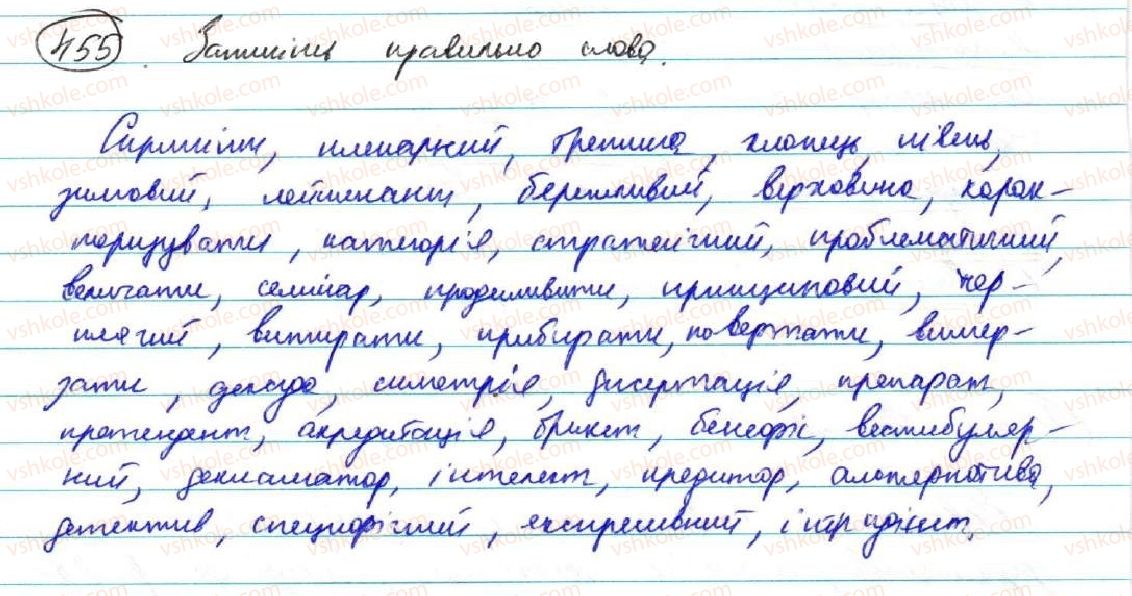 455. Запишіть правильно слова.
Скрижіти, пленарний, гребти, хлопець, півень,
зимовий, лейтенант, бережливий, верховина, харак-
теризувати, категорія, стратегічний, проблематичний,
величати, семінар, продешевити, принциповий, чер-
пачний, витирати, прибирати, повертати, вимер-
зати, декада, симетрія, дисертація, препарат,
претендент, акредитація, брикет, бенефіс, вестибуляр-
ний, декламатор, інтелект, кредитор, альтернатива,
детектив, специфічний, експресивний, інгредієнт.